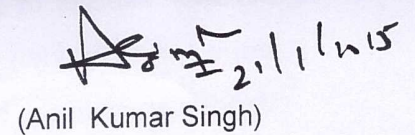 21/1/2015
(Anil Kumar Singh)